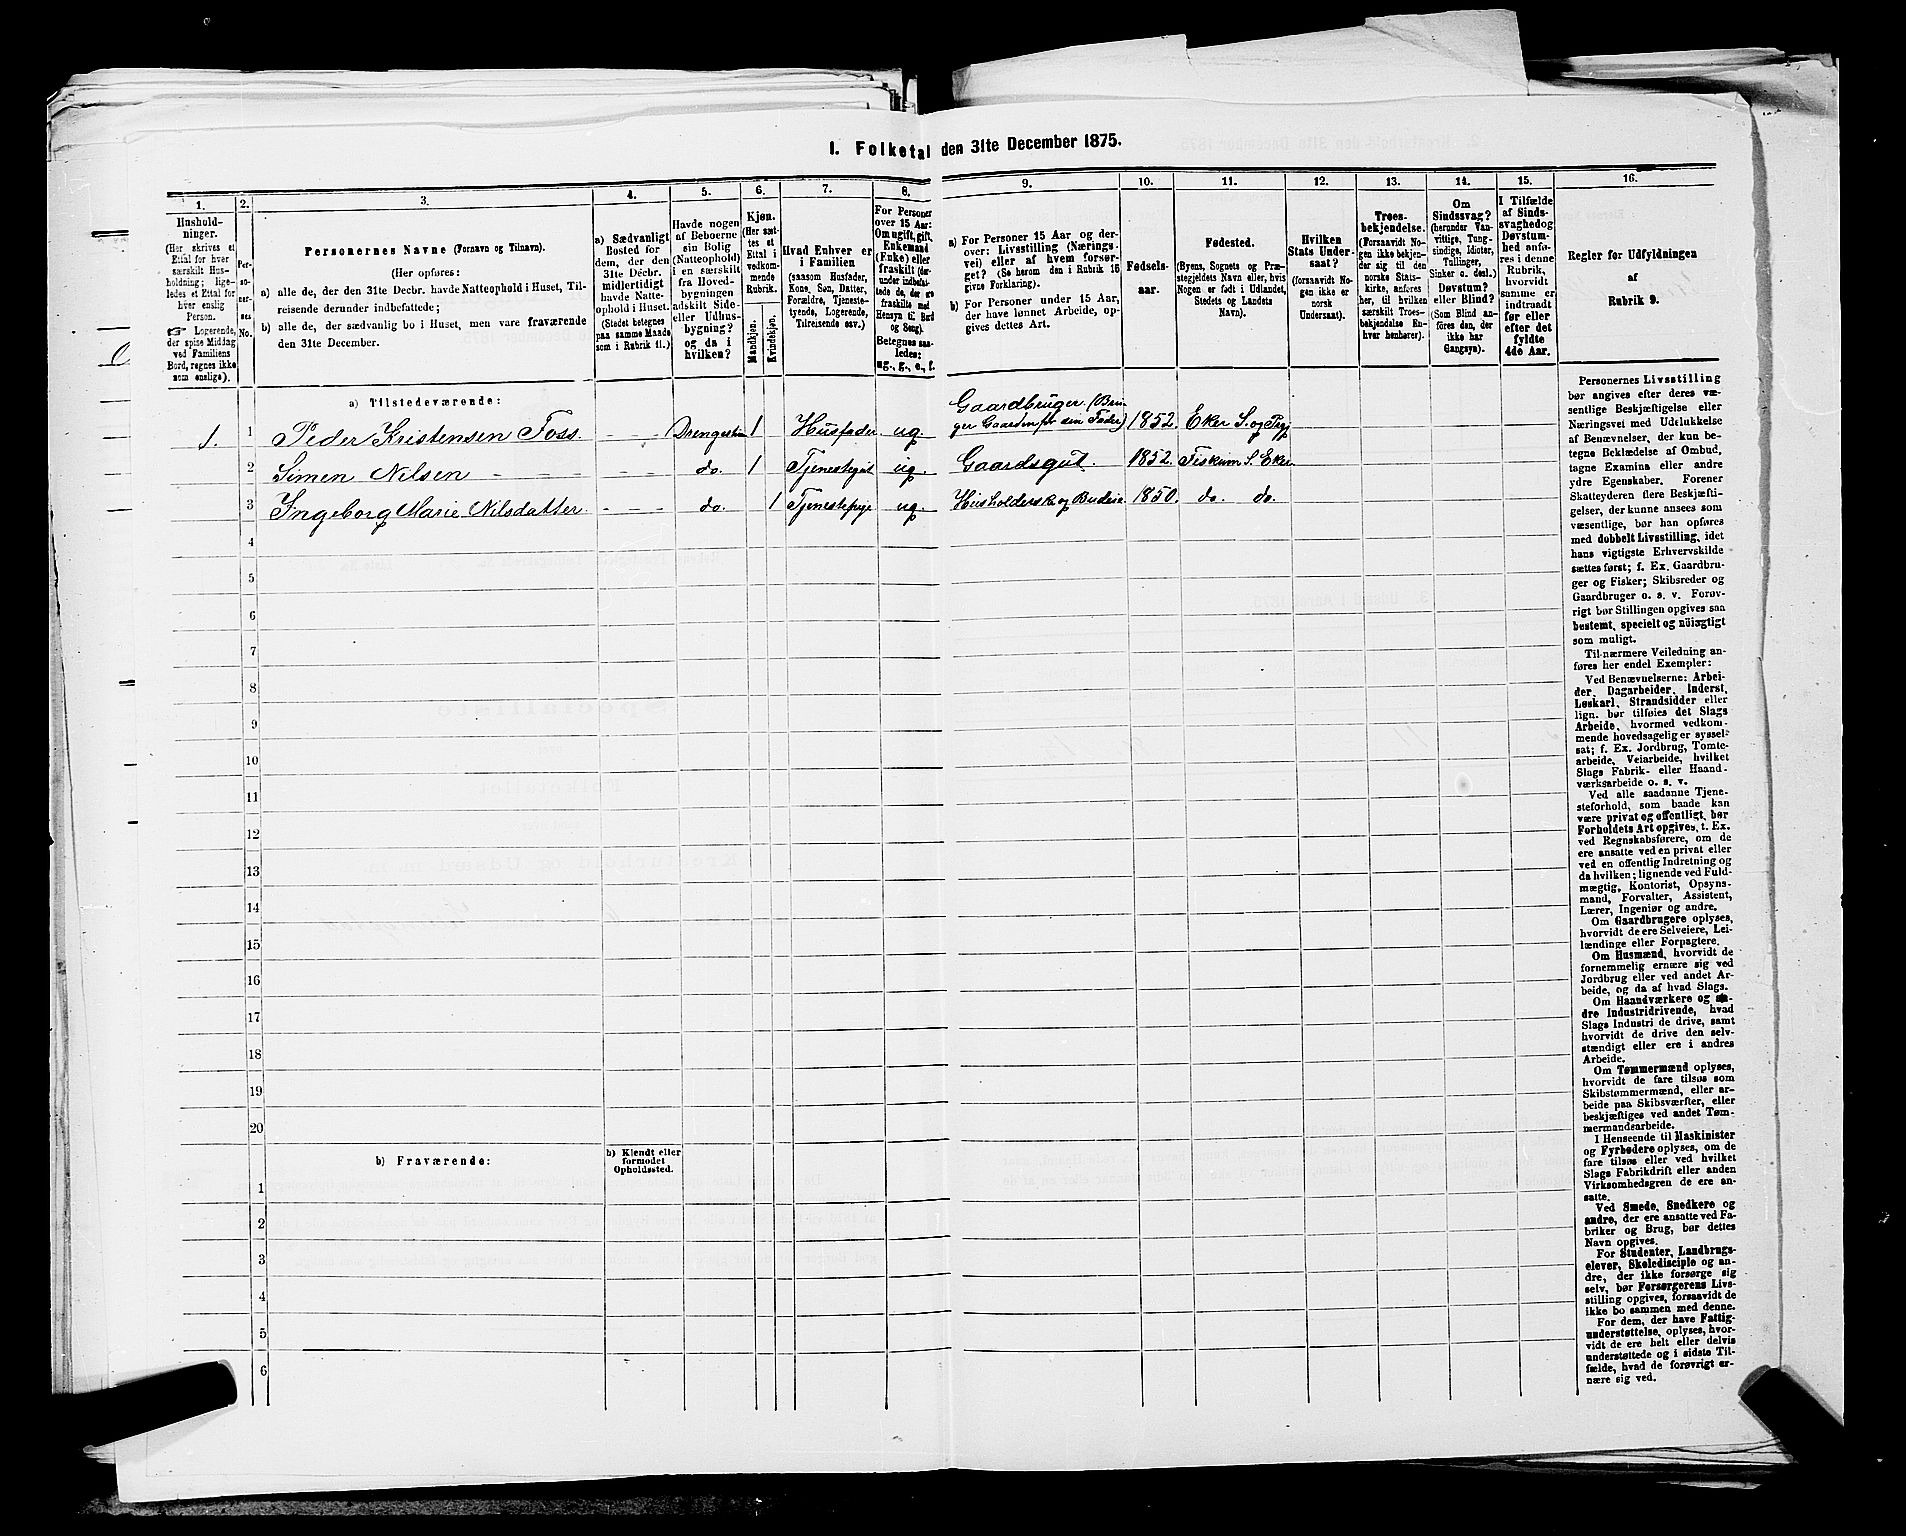 I. Folketal den 31te December 1875.
1.
Hushold-
ninger.
(Her skrives et
Ettal for hver
særskilt Hus-
holdning; lige-
ledes et Ettal for
hver enslig
Person.
☞ Logerende,
der spise Middag
ved Familiens
Bord, regnes ikke
som enslige).
2.
Per-
so-
ner-
nes
No.
3.
Personernes Navne (Fornavn og Tilnavn).
(Her opføres:
a) alle de, der den 31te Decbr. havde Natteophold i Huset, Til-
reisende derunder indbefattede;
b) alle de, der sædvanlig bo i Huset, men vare fraværende
den 31te December.
4.
a) Sædvanligt
Bosted for
dem, der den
31te Decbr.
midlertidigt
havde Natte-
ophold i Huset.
(Stedet betegnes
paa samme Maade
som i Rubrik 11.)
5.
Havde nogen
af Beboerne
sin Bolig
(Natteophold)
i en særskilt
fra Hoved-
bygningen
adskilt Side-
eller Udhus-
bygning?
og da i
hvilken?
6.
Kjøn.
(Her sæt-
tes et
Ettal i
vedkom-
mende
Rubrik.
Mandkjøn.
Kvindekjøn.
7.
Hvad Enhver er
i Familien
(saasom Husfader,
Kone, Søn, Datter,
Forældre, Tjeneste-
tyende, Logerende,
Tilreisende osv.)
8.
For Personer
over 15 Aar:
Om ugift, gift,
Enkemand
(Enke) eller
fraskilt (der-
under indbefat-
tede de, der ere
fraskilte med
Hensyn til Bord
og Seng).
Betegnes saa-
ledes:
ug., g., e., f.
9.
a) For Personer 15 Aar og der-
over: Livsstilling (Nærings-
vei) eller af hvem forsør-
get? (Se herom den i Rubrik 16
givne Forklaring).
b) For Personer under 15 Aar,
der have lønnet Arbeide, op-
gives dettes Art.
10.
Fødsels-
aar.
11.
Fødested.
(Byens, Sognets og Præ-
stegjeldets Navn eller, hvis
Nogen er født i Udlandet,
Stedets og Landets
Navn).
12.
Hvilken
Stats Under-
saat?
(forsaavidt No-
gen ikke er
norsk
Undersaat).
13.
Troes-
bekjendelse.
(Forsaavidt No-
gen ikke bekjen-
der sig til den
norske Stats-
kirke, anføres
her, til hvilken
særskilt Troes-
bekjendelse En-
hver henhører).
14.
Om
Sindssvag?
(herunder Van-
vittige, Tung-
sindige, Idioter,
Tullinger,
Sinker o. desl.)
Døvstum?
eller Blind?
(Som Blind an-
føres den, der
ikke har
Gangsyn).
15.
I Tilfælde
af Sinds-
svaghed og
Døvstum-
hed anfø-
res i denne
Rubrik,
hvorvidt
samme er
indtraadt
før eller
efter det
fyldte
4de Aar.
16.
Regler for Udfyldningen
af
Rubrik 9.
a) Tilstedeværende:
1. 1 Peder Kristensen Foss. - - - Drengestu 1 Husfader ug. Gaardbruger. (Bru-
ger Gaarden for sin Fader) 1852. Eker S. og Prgj
2 Simen Nilsen - - - - do. 1 Tjenestegut ug. Gaardsgut. 1852. Fiskum S. Eker.
3 Ingeborg Marie Nilsdatter. - - - do. 1 Tjenestepige ug. Husholdersk. og Budeie. 1850. do. do.
4
5
6
7
8
9
10
11
12
13
14
15
16
17
18
19
20
b) Fraværende:
b) Kjendt eller
formodet
Opholdssted.
1
2
3
4
5
6
Personernes Livsstilling
bør angives efter deres væ-
sentlige Beskjæftigelse eller
Næringsvei med Udelukkelse
af Benævnelser, der kun be-
tegne Beklædelse af Ombud,
tagne Examina eller andre
ydre Egenskaber. Forener
Skatteyderen flere Beskjæfti-
gelser, der kunne ansees som
væsentlige, bør han opføres
med dobbelt Livsstilling, idet
hans vigtigste Erhvervskilde
sættes først; f. Ex. Gaardbru-
ger og Fisker; Skibsreder og
Gaardbruger o. s. v. Forøv-
rigt bør Stillingen opgives saa
bestemt, specielt og nøiagtigt
som muligt.
Til nærmere Veiledning an-
føres her endel Exempler:
Ved Benævnelserne: Arbei-
der, Dagarbeider, Inderst,
Løskarl, Strandsidder eller
lign. bør tilføies det Slags
Arbeide, hvormed vedkom-
mende hovedsagelig er syssel-
sat; f. Ex. Jordbrug, Tomte-
arbeide, Veiarbeide, hvilket
Slags Fabrik- eller Haand-
værksarbeide o. s. v.
Ved alle saadanne Tjene-
steforhold, som baade kan
være privat og offentligt, bør
Forholdets Art opgives, f. Ex.
ved Regnskabsførere, om de
ere ansatte ved en privat eller
ved en offentlig Indretning og
da hvilken; lignende ved Fuld-
mægtig, Kontorist, Opsyns-
mand, Forvalter, Assistent,
Lærer, Ingeniør og andre.
Om Gaardbrugere oplyses,
hvorvidt de ere Selveiere, Lei-
lændinge eller Forpagtere.
Om Husmænd, hvorvidt de
fornemmelig ernære sig ved
Jordbrug eller ved andet Ar-
beide, og da af hvad Slags.
Om Haandværkere og an-
dre Industridrivende, hvad
Slags Industri de drive, samt
hvorvidt de drive den selv-
stændigt eller ere i andres
Arbeide.
Om Tømmermænd oplyses,
hvorvidt de fare tilsøs som
Skibstømmermænd, eller ar-
beide paa Skibsværfter, eller
beskjæftiges ved andet Tøm-
mermandsarbeide.
I Henseende til Maskinister
og Fyrbødere oplyses, om de
fare tilsøs eller ved hvilket
Slags Fabrikdrift eller anden
Virksomhedsgren de ere an-
satte.
Ved Smede, Snedkere og
andre, der ere ansatte ved Fa-
briker og Brug, bør dettes
Navn opgives.
For Studenter, Landbrugs-
elever, Skoledisciple og an-
dre, der ikke forsørge sig
selv, bør Forsørgerens Livs-
stilling opgives, forsaavidt de
ikke bo sammen med denne.
For dem, der have Fattig-
understøttelse, oplyses, hvor-
vidt de ere helt eller delvis
understøttede og i sidste Til-
fælde, hvad de forøvrigt er-
nære sig ved.